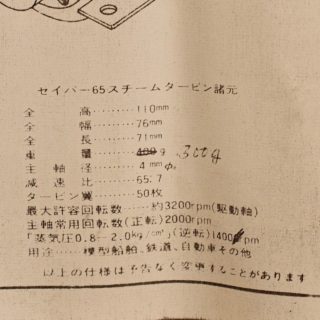 セイバー65スチームタービン諸元
全 高………110mm
全 幅………76mm
全 長………71mm
重 量………400g 300g
主 軸 径………4mmφ
減 速 比………65:7
タービン翼………50枚
最大許容回転数……約3200rpm(駆動軸)
主軸常用回転数(正転)2000rpm
「蒸気圧0.8-2.0kg/cm²」(逆転)1400rpm
用途……模型船舶、鉄道、自動車その他
以上の仕様は予告なく変更することがあります